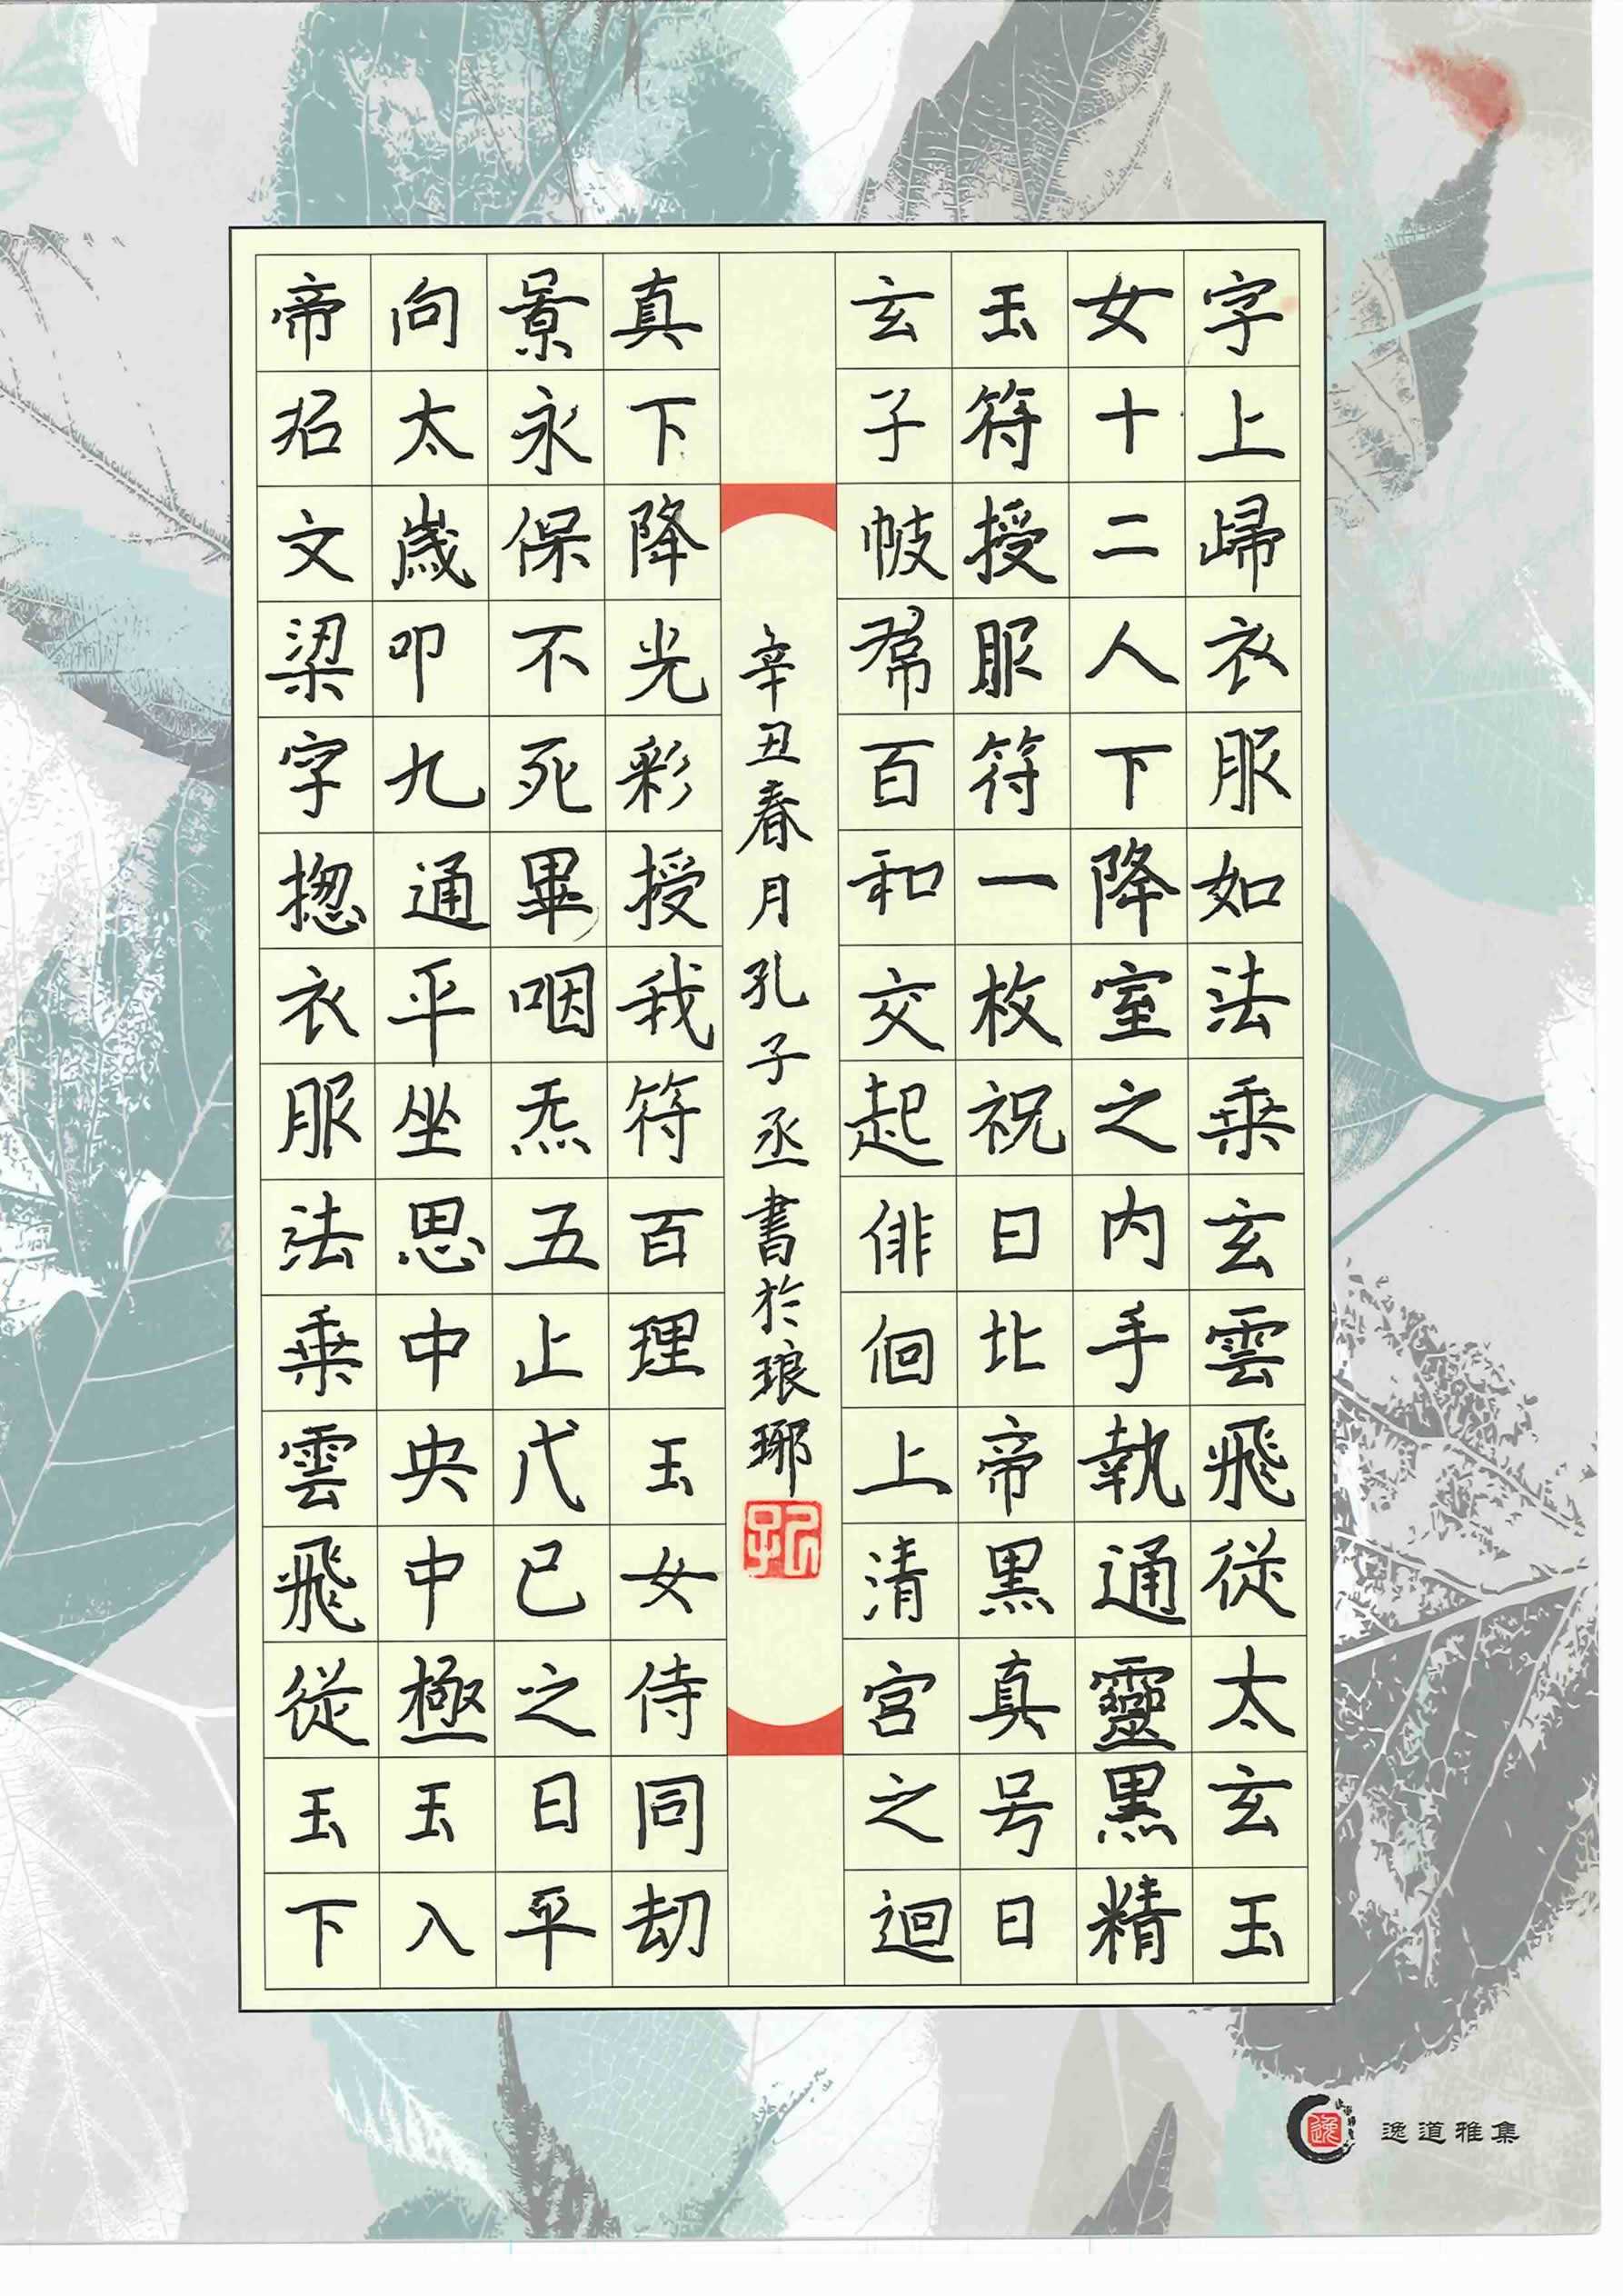 字上歸衣服如法乘玄雲飛從太玄玉
女十二人下降室之内手執通靈黑精
玉符授服符一枚祝曰北帝黑真号曰
玄子帔帬百和交起俳佪上清宫之迴
辛丑春月孔子丞書於琅琊
孔
真下降光彩授我符百理玉女侍同劫
景永保不死畢咽炁五止戊己之日平
向太歲叩九通平坐思中央中極玉入
帝招文梁字揔衣服法乘雲飛從玉下
逸
逸道雅集